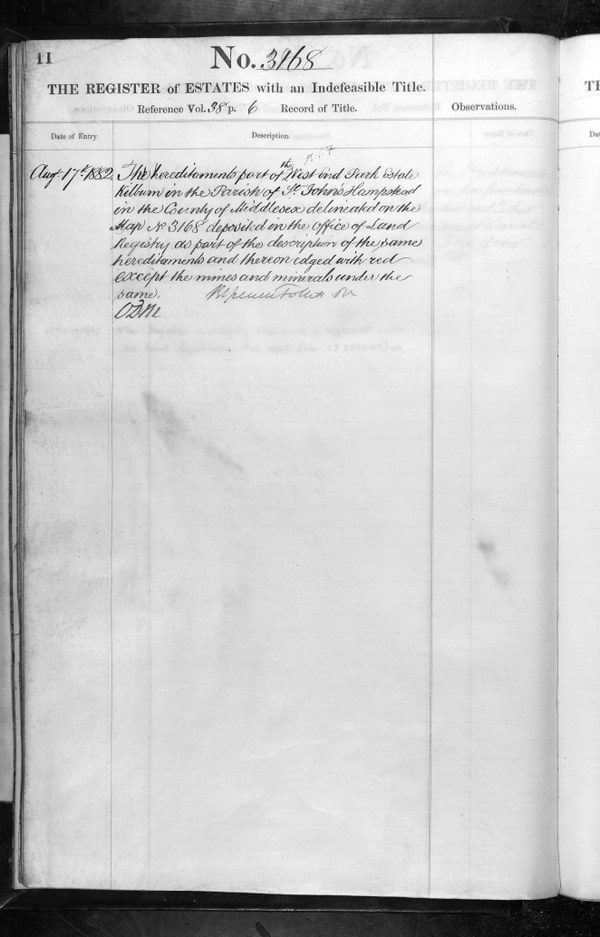 11
No. 3168
THE REGISTER of ESTATES with an Indefeasible Title.
Reference Vol. 38 p. 6 Record of Title.
Observations.
Date of Entry.
Description.
Augt. 17th 1882
The hereditaments part of the West End Park Estate
Kilburn in the Parish of St. John's Hampstead
in the County of Middlesex delineated on the
Map No 3168 deposited in the Office of Land
Registry as part of the description of the same
hereditaments and thereon edged with red
except the mines and minerals under the
same.